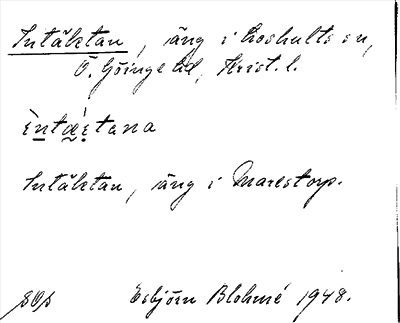 Intäktan, äng i Loshults sn,
Ö. Göinge hd, Krist. l.
èntæ̀ktana
Intäktan, äng i Marestorp.
Esbjörn Blohmé 1948.